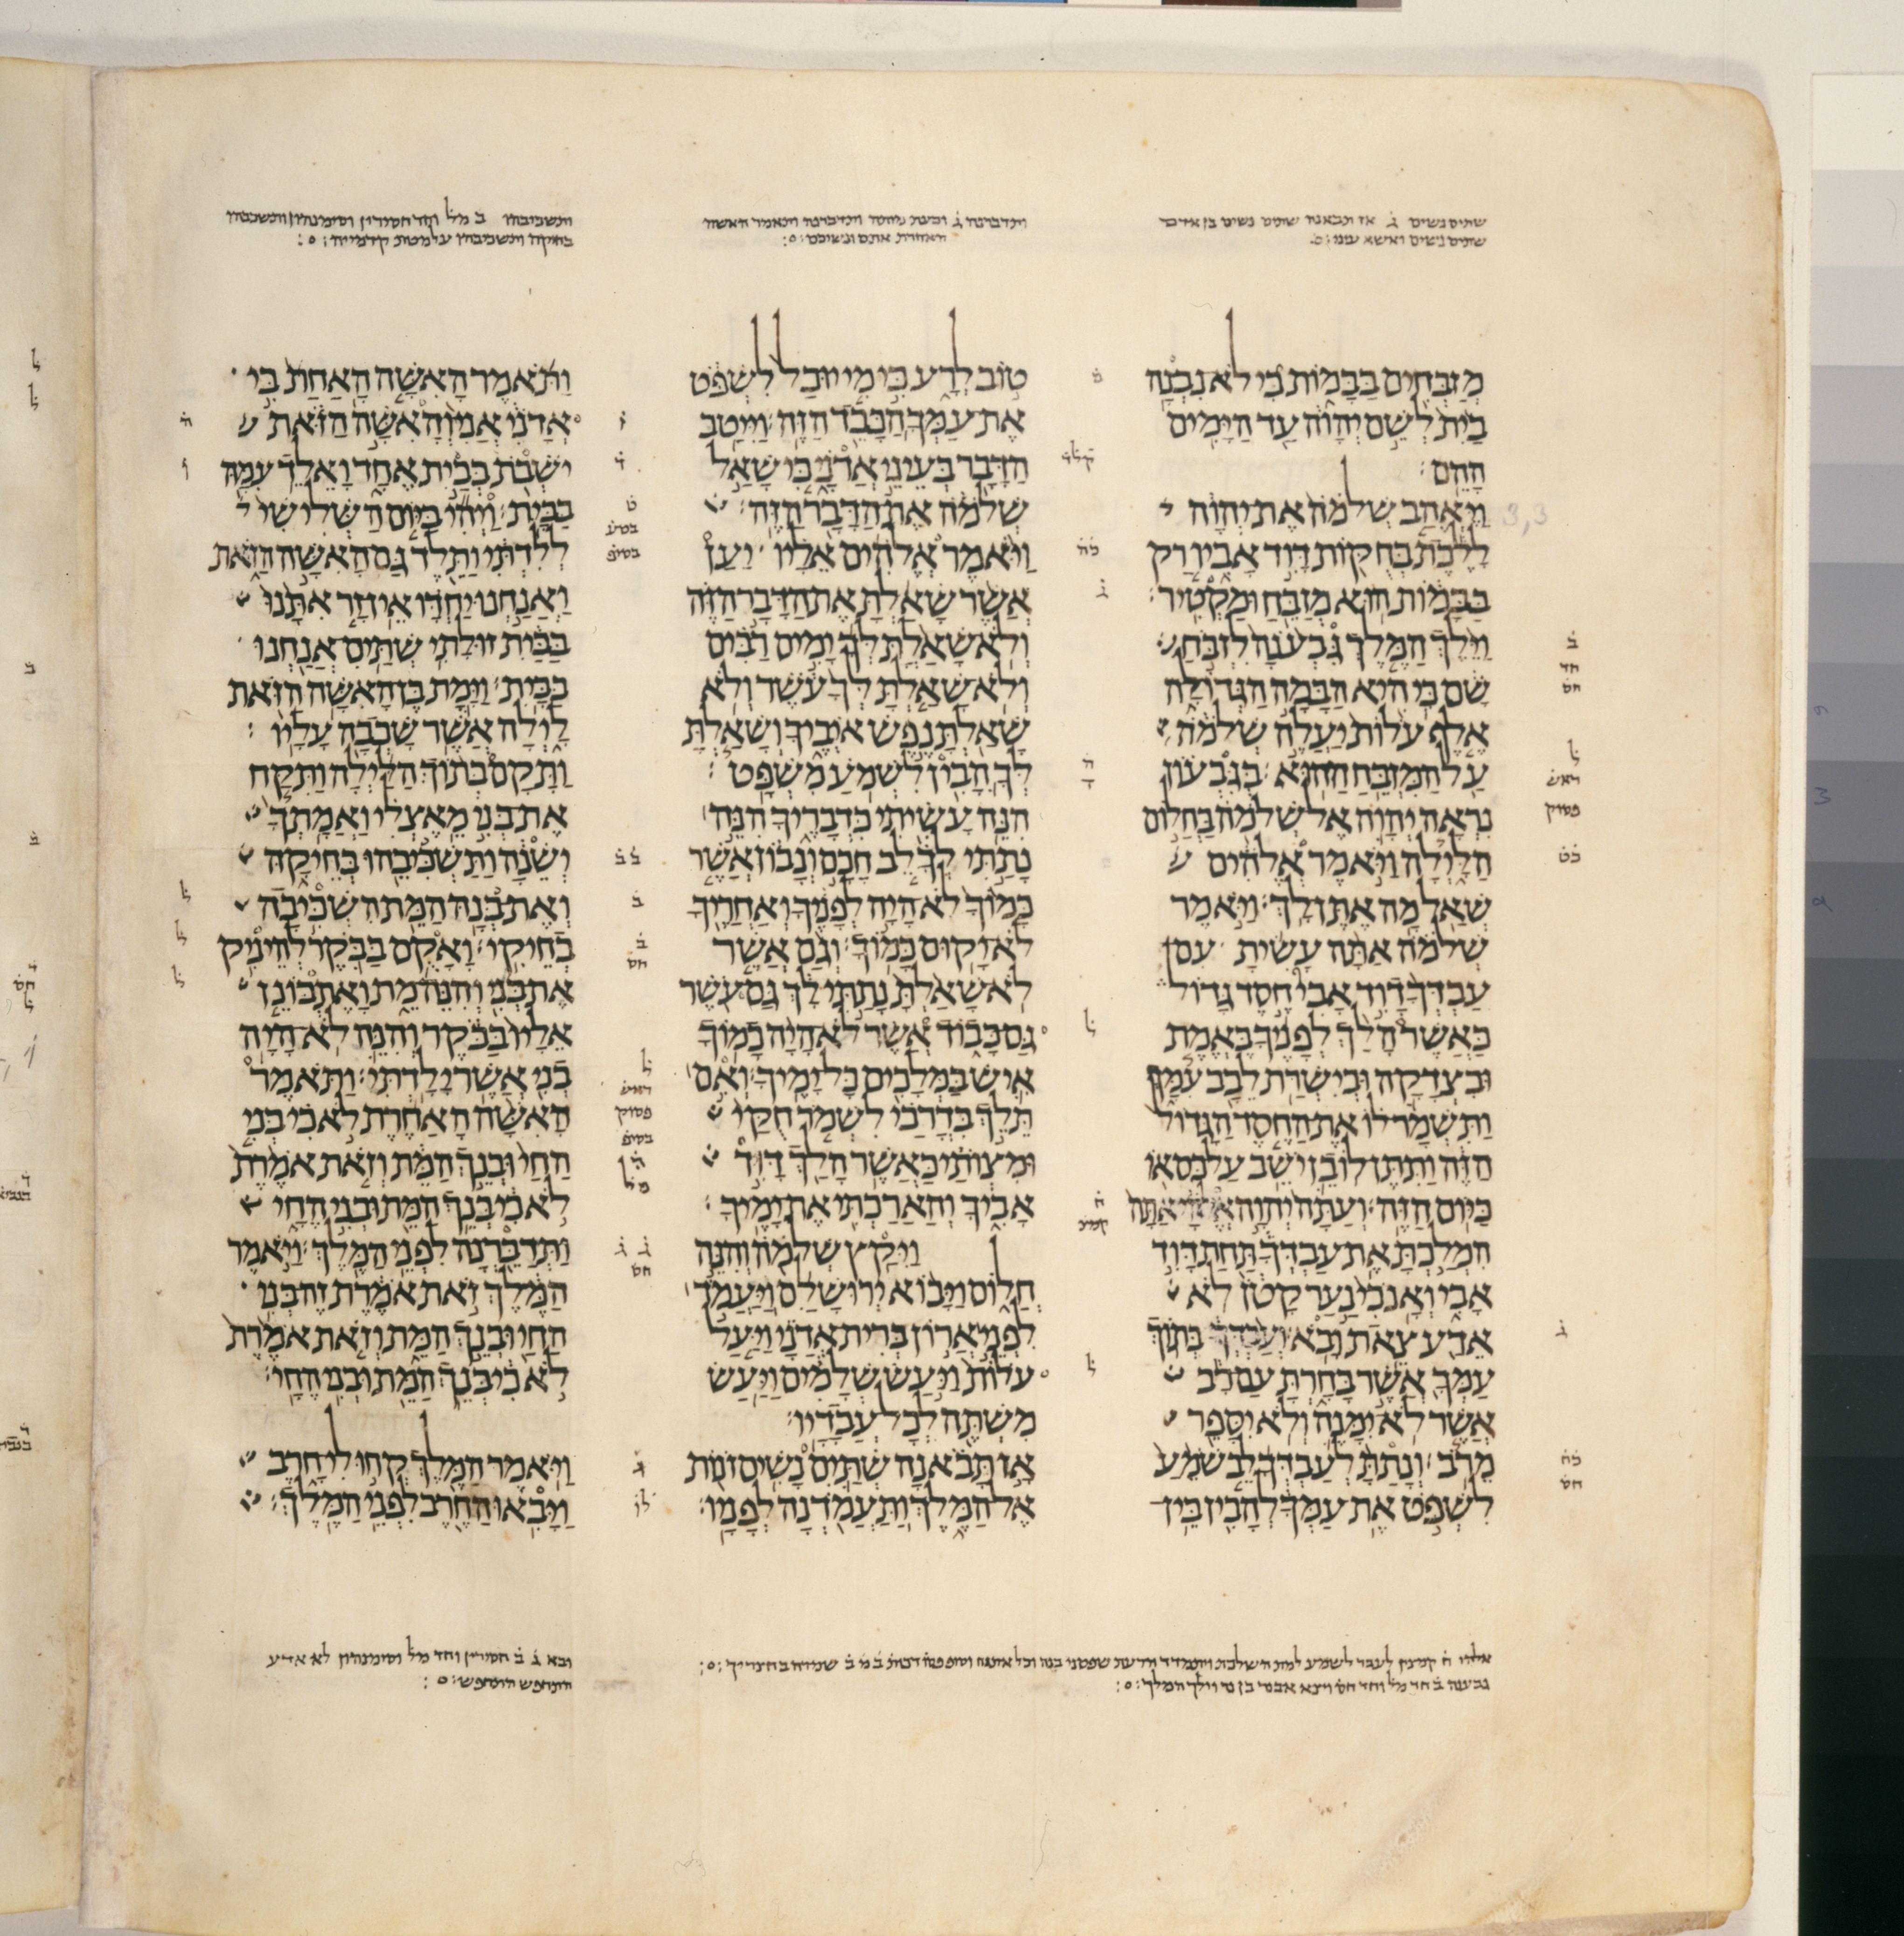 שתים נשים ג אז תבאנה שתים נשים
שתים נשים ואשא עיני
מְזַבְּחִים בַּבָּמוֹת כִּי לֹא נִבְנָה
בַיִת לְשֵׁם יְהוָה עַד הַיָּמִים
הָהֵם׃
וַיֶּאֱהַב שְׁלֹמֹה אֶת יְהוָה
לָלֶכֶת בְּחֻקּוֹת דָּוִד אָבִיו רַק
בַּבָּמוֹת הוּא מְזַבֵּחַ וּמַקְטִיר׃
וַיֵּלֶךְ הַמֶּלֶךְ גִּבְעֹנָה לִזְבֹּחַ
שָׁם כִּי הִיא הַבָּמָה הַגְּדוֹלָה
אֶלֶף עֹלוֹת יַעֲלֶה שְׁלֹמֹה
עַל הַמִּזְבֵּחַ הַהוּא׃ בְּגִבְעוֹן
נִרְאָה יְהוָה אֶל שְׁלֹמֹה בַּחֲלוֹם
הַלָּיְלָה וַיֹּאמֶר אֱלֹהִים
שְׁאַל מָה אֶתֶּן לָךְ׃ וַיֹּאמֶר
שְׁלֹמֹה אַתָּה עָשִׂיתָ עִם
עַבְדְּךָ דָוִד אָבִי חֶסֶד גָּדוֹל
כַּאֲשֶׁר הָלַךְ לְפָנֶיךָ בֶּאֱמֶת
וּבִצְדָקָה וּבְיִשְׁרַת לֵבָב עִמָּךְ
וַתִּשְׁמָר לוֹ אֶת הַחֶסֶד הַגָּדוֹל
הַזֶּה וַתִּתֶּן לוֹ בֵן יֹשֵׁב עַל כִּסְאוֹ
כַּיּוֹם הַזֶּה׃ וְעַתָּה יְהוָה אֱלֹהָי אַתָּה
הִמְלַכְתָּ אֶת עַבְדְּךָ תַּחַת דָּוִד
אָבִי וְאָנֹכִי נַעַר קָטֹן לֹא
אֵדַע צֵאת וָבֹא׃ וְעַבְדְּךָ בְּתוֹךְ
עַמְּךָ אֲשֶׁר בָּחָרְתָּ עַם רָב
אֲשֶׁר לֹא יִמָּנֶה וְלֹא יִסָּפֵר
מֵרֹב׃ וְנָתַתָּ לְעַבְדְּךָ לֵב שֹׁמֵעַ
לִשְׁפֹּט אֶת עַמְּךָ לְהָבִין בֵּין
טוֹב לְרָע כִּי מִי יוּכַל לִשְׁפֹּט
אֶת עַמְּךָ הַכָּבֵד הַזֶּה׃ וַיִּיטַב
הַדָּבָר בְּעֵינֵי אֲדֹנָי כִּי שָׁאַל
שְׁלֹמֹה אֶת הַדָּבָר הַזֶּה׃
וַיֹּאמֶר אֱלֹהִים אֵלָיו יַעַן
אֲשֶׁר שָׁאַלְתָּ אֶת הַדָּבָר הַזֶּה
וְלֹא שָׁאַלְתָּ לְּךָ יָמִים רַבִּים
וְלֹא שָׁאַלְתָּ לְּךָ עֹשֶׁר וְלֹא
שָׁאַלְתָּ נֶפֶשׁ אֹיְבֶיךָ וְשָׁאַלְתָּ
לְּךָ הָבִין לִשְׁמֹעַ מִשְׁפָּט׃
הִנֵּה עָשִׂיתִי כִּדְבָרֶיךָ הִנֵּה
נָתַתִּי לְךָ לֵב חָכָם וְנָבוֹן אֲשֶׁר
כָּמוֹךָ לֹא הָיָה לְפָנֶיךָ וְאַחֲרֶיךָ
לֹא יָקוּם כָּמוֹךָ׃ וְגַם אֲשֶׁר
לֹא שָׁאַלְתָּ נָתַתִּי לָךְ גַּם עֹשֶׁר
גַּם כָּבוֹד אֲשֶׁר לֹא הָיָה כָמוֹךָ
אִישׁ בַּמְּלָכִים כָּל יָמֶיךָ׃ וְאִם
תֵּלֵךְ בִּדְרָכַי לִשְׁמֹר חֻקַּי
וּמִצְוֺתַי כַּאֲשֶׁר הָלַךְ דָּוִיד
אָבִיךָ וְהַאֲרַכְתִּי אֶת יָמֶיךָ׃
וַיִּקַץ שְׁלֹמֹה וְהִנֵּה
חֲלוֹם וַיָּבוֹא יְרוּשָׁלִַם וַיַּעֲמֹד
לִפְנֵי אֲרוֹן בְּרִית אֲדֹנָי וַיַּעַל
עֹלוֹת וַיַּעַשׂ שְׁלָמִים וַיַּעַשׂ
מִשְׁתֶּה לְכָל עֲבָדָיו׃
אָז תָּבֹאנָה שְׁתַּיִם נָשִׁים זֹנוֹת
אֶל הַמֶּלֶךְ וַתַּעֲמֹדְנָה לְפָנָיו׃
וַתֹּאמֶר הָאִשָּׁה הָאַחַת בִּי
אֲדֹנִי אֲנִי וְהָאִשָּׁה הַזֹּאת
יֹשְׁבֹת בְּבַיִת אֶחָד וָאֵלֵד עִמָּהּ
בַּבָּיִת׃ וַיְהִי בַּיּוֹם הַשְּׁלִישִׁי
לְלִדְתִּי וַתֵּלֶד גַּם הָאִשָּׁה הַזֹּאת
וַאֲנַחְנוּ יַחְדָּו אֵין זָר אִתָּנוּ
בַּבַּיִת זוּלָתִי שְׁתַּיִם אֲנַחְנוּ
בַּבָּיִת׃ וַיָּמָת בֶּן הָאִשָּׁה הַזֹּאת
לָיְלָה אֲשֶׁר שָׁכְבָה עָלָיו׃
וַתָּקָם בְּתוֹךְ הַלַּיְלָה וַתִּקַּח
אֶת בְּנִי מֵאֶצְלִי וַאֲמָתְךָ
יְשֵׁנָה וַתַּשְׁכִּיבֵהוּ בְּחֵיקָהּ
וְאֶת בְּנָהּ הַמֵּת הִשְׁכִּיבָה
בְחֵיקִי׃ וָאָקֻם בַּבֹּקֶר לְהֵינִיק
אֶת בְּנִי וְהִנֵּה מֵת וָאֶתְבּוֹנֵן
אֵלָיו בַּבֹּקֶר וְהִנֵּה לֹא הָיָה
בְנִי אֲשֶׁר יָלָדְתִּי׃ וַתֹּאמֶר
הָאִשָּׁה הָאַחֶרֶת לֹא כִי בְּנִי
הַחַי וּבְנֵךְ הַמֵּת וְזֹאת אֹמֶרֶת
לֹא כִי בְּנֵךְ הַמֵּת וּבְנִי הֶחָי
וַתְּדַבֵּרְנָה לִפְנֵי הַמֶּלֶךְ׃ וַיֹּאמֶר
הַמֶּלֶךְ זֹאת אֹמֶרֶת זֶה בְּנִי
הַחַי וּבְנֵךְ הַמֵּת וְזֹאת אֹמֶרֶת
לֹא כִי בְּנֵךְ הַמֵּת וּבְנִי הֶחָי׃
וַיֹּאמֶר הַמֶּלֶךְ קְחוּ לִי חָרֶב
וַיָּבִאוּ הַחֶרֶב לִפְנֵי הַמֶּלֶךְ׃